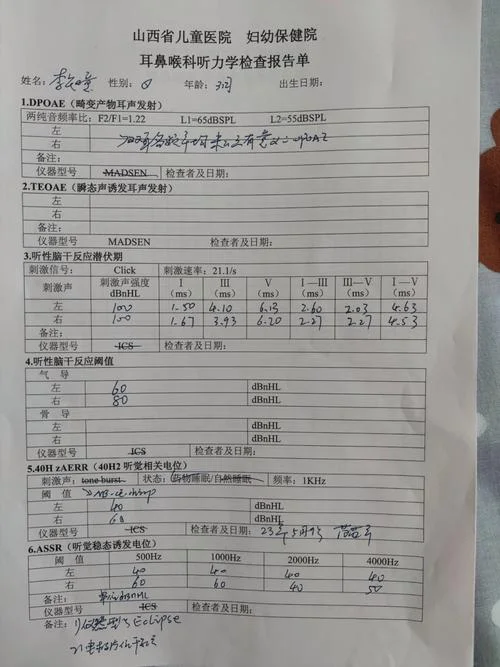 山西省儿童医院 妇幼保健院
耳鼻喉科听力学检查报告单
姓名: 性别: 年龄: 出生日期:
1.DPOAE（畸变产物耳声发射）
两纯音频率比: F2/F1=1.22 L1=65dBSPL L2=55dBSPL
左
右
备注:
仪器型号 MADSEN 检查者及日期:
2.TEOAE（瞬态声诱发耳声发射）
左
右
备注:
仪器型号 MADSEN 检查者及日期:
3.听性脑干反应潜伏期
刺激信号: Click 刺激速率: 21.1/s
刺激声 刺激声强度 dBnHL I (ms) III (ms) V (ms) I—III (ms) III—V (ms) I—V (ms)
左 100 1.50 4.10 6.13 2.60 2.03 4.63
右 100 1.67 3.93 6.20 2.27 2.27 4.53
备注:
仪器型号 ICS 检查者及日期:
4.听性脑干反应阈值
气 导
左 60 dBnHL
右 80 dBnHL
骨 导
左 dBnHL
右 dBnHL
仪器型号 ICS 检查者及日期:
5.40H zAERR（40H2 听觉相关电位）
刺激声: tone burst 状态: 药物睡眠/自然睡眠 频率: 1KHz
阈 值
左 40 dBnHL
右 60 dBnHL
仪器型号 ICS 检查者及日期:
6.ASSR（听觉稳态诱发电位）
阈 值 500Hz 1000Hz 2000Hz 4000Hz
左 40 40 40 40
右 60 60 40 50
备注: 单位dBnHL
仪器型号 ICS 检查者及日期:
备注: Eclipse